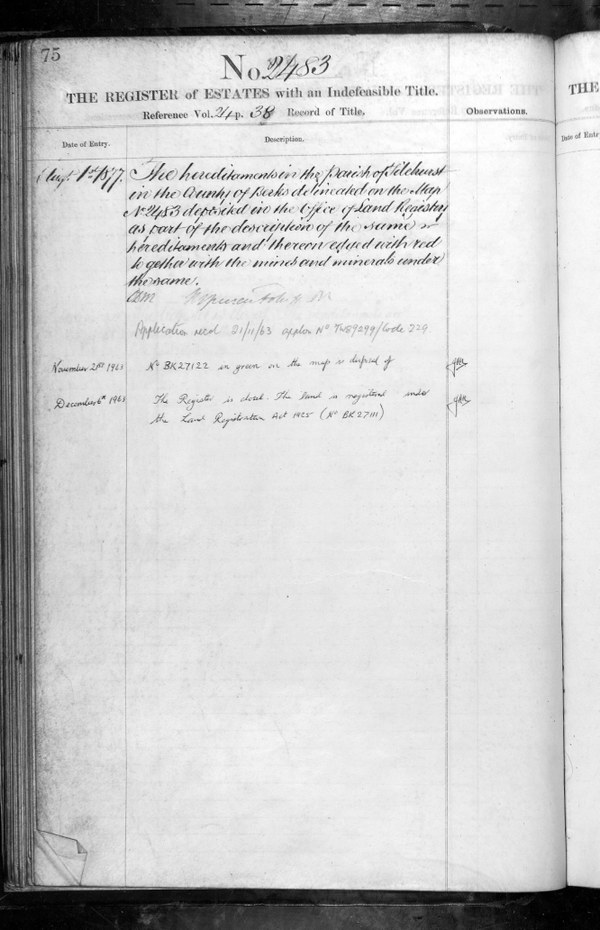 75
No. 2483
THE REGISTER of ESTATES with an Indefeasible Title.
Reference Vol. 24 p. 38 Record of Title.
Observations.
Date of Entry.
Description.
Augt. 1st 1877.
The hereditaments in the Parish of Tilehurst
in the County of Berks delineated on the Map
No. 2483 deposited in the Office of Land Registry
as part of the description of the same
hereditaments and thereon edged with red
together with the mines and minerals under
the same.
Application recd 21/11/63 appln No
November 21st 1963
No BK27122 in green on the map is disposed of
December 6th 1963
The Register is closed. The land is registered under
the Land Registration Act 1925 (No BK27111)
THE
Date of Entry